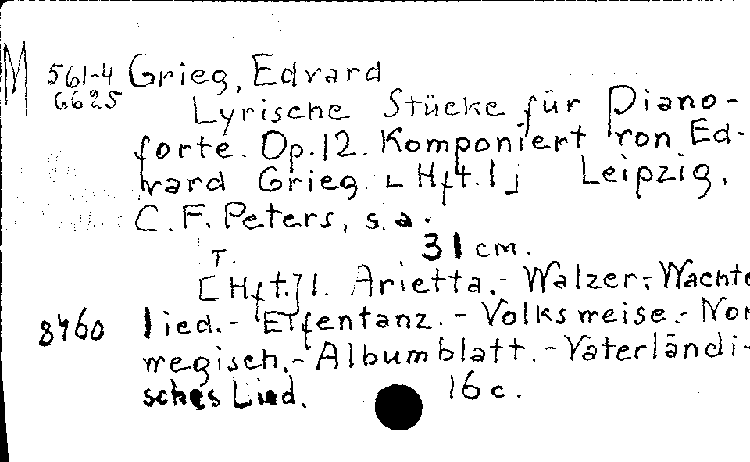 M 561-4 Grieg, Edvard
6625 Lyrische Stücke für Piano-
forte. Op.12. Komponiert von Ed-
vard Grieg. [Hft.1] Leipzig,
C. F. Peters, s. a.
31 cm.
T.
[Hft.]1. Arietta.- Walzer.- Wachte
8460 lied.- Elfentanz.- Volksweise.- Nor
wegisch.- Albumblatt.- Vaterländi-
sches Lied. 16 c.